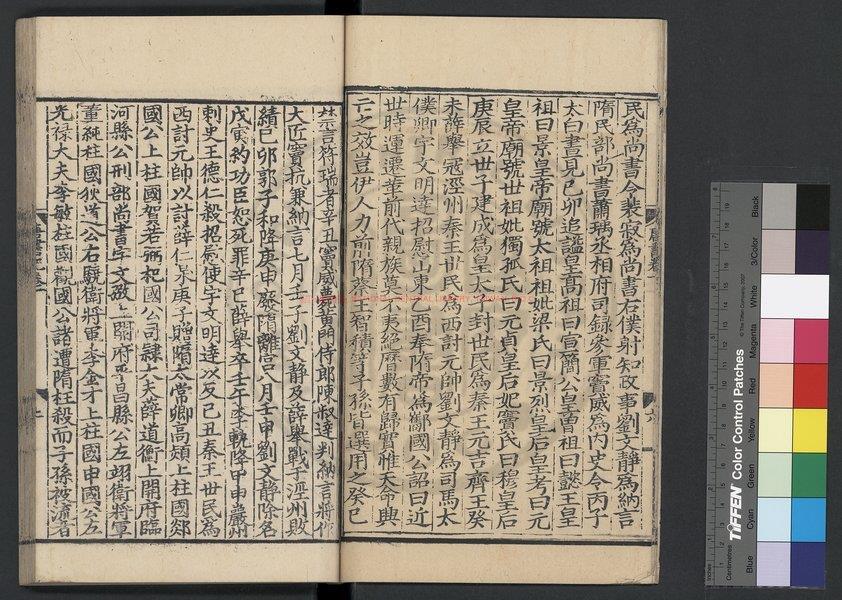 民爲尚書令裴寂爲尚書右僕射知政事劉文靜爲納言
隋民部尚書蕭瑀丞相府司録參軍竇威爲内史令丙子
太白晝見己卯追謚皇髙祖曰宣簡公皇曽祖曰懿王皇
祖曰景皇帝廟號太祖祖妣梁氏曰景烈皇后皇考曰元
皇帝廟號世祖妣獨孤氏曰元貞皇后妃竇氏曰穆皇后
庚辰立世子建成爲皇太子封世民爲秦王元吉齊王癸
未薛舉寇涇州秦王世民爲西討元帥劉文靜爲司馬太
僕卿宇文明達招慰山東乙酉奉隋帝爲酅國公詔曰近
世時運遷革前代親族莫不夷絶曆數有歸實惟天命興
亡之效豈伊人力前隋蔡王智積等子孫皆選用之癸巳
禁言符瑞者辛丑竇威薨黄門侍郎陳叔達判納言將作
大匠竇抗兼納言七月壬子劉文靜及薛舉戰于涇州敗
績乙卯郭子和降庚申廢隋離宫八月壬申劉文靜除名
戊寅約功臣恕死罪辛巳薛舉卒壬午李軌降甲申巖州
刺史王德仁殺招慰使宇文明達以反己丑秦王世民爲
西討元帥以討薛仁杲庚子贈隋太常卿高熲上柱國郯
國公上柱國賀若弼杞國公司隸大夫薛道衡上開府臨
河縣公刑部尚書宇文㢸上開府平昌縣公左翊衛將軍
董純柱國狄道公右驍衛將軍李金才上柱國申國公左
光禄大夫李敏柱國觀國公諸遭隋枉殺而子孫被流者
Inches
Centimetres
TIFFEN Color Control Patches
© The Tiffen Company, 2007
Blue
Cyan
Green
Yellow
Red
Magenta
White
3/Color
Black